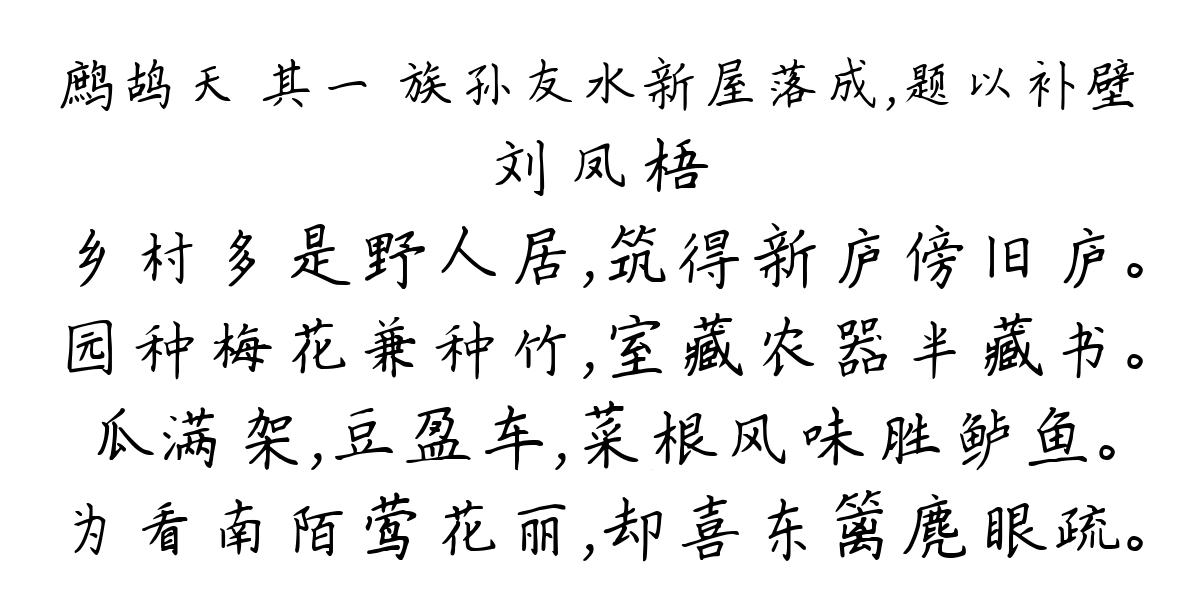 鹧鸪天 其一 族孙友水新屋落成,题以补壁
刘凤梧
乡村多是野人居,筑得新庐傍旧庐。
园种梅花兼种竹,室藏农器半藏书。
瓜满架,豆盈车,菜根风味胜鲈鱼。
为看南陌莺花丽,却喜东篱麂眼疏。